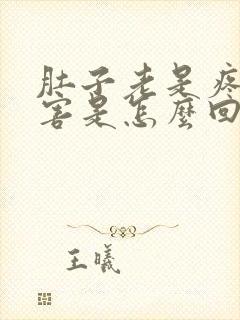 肚子老是疼
害是怎麼回
王曦